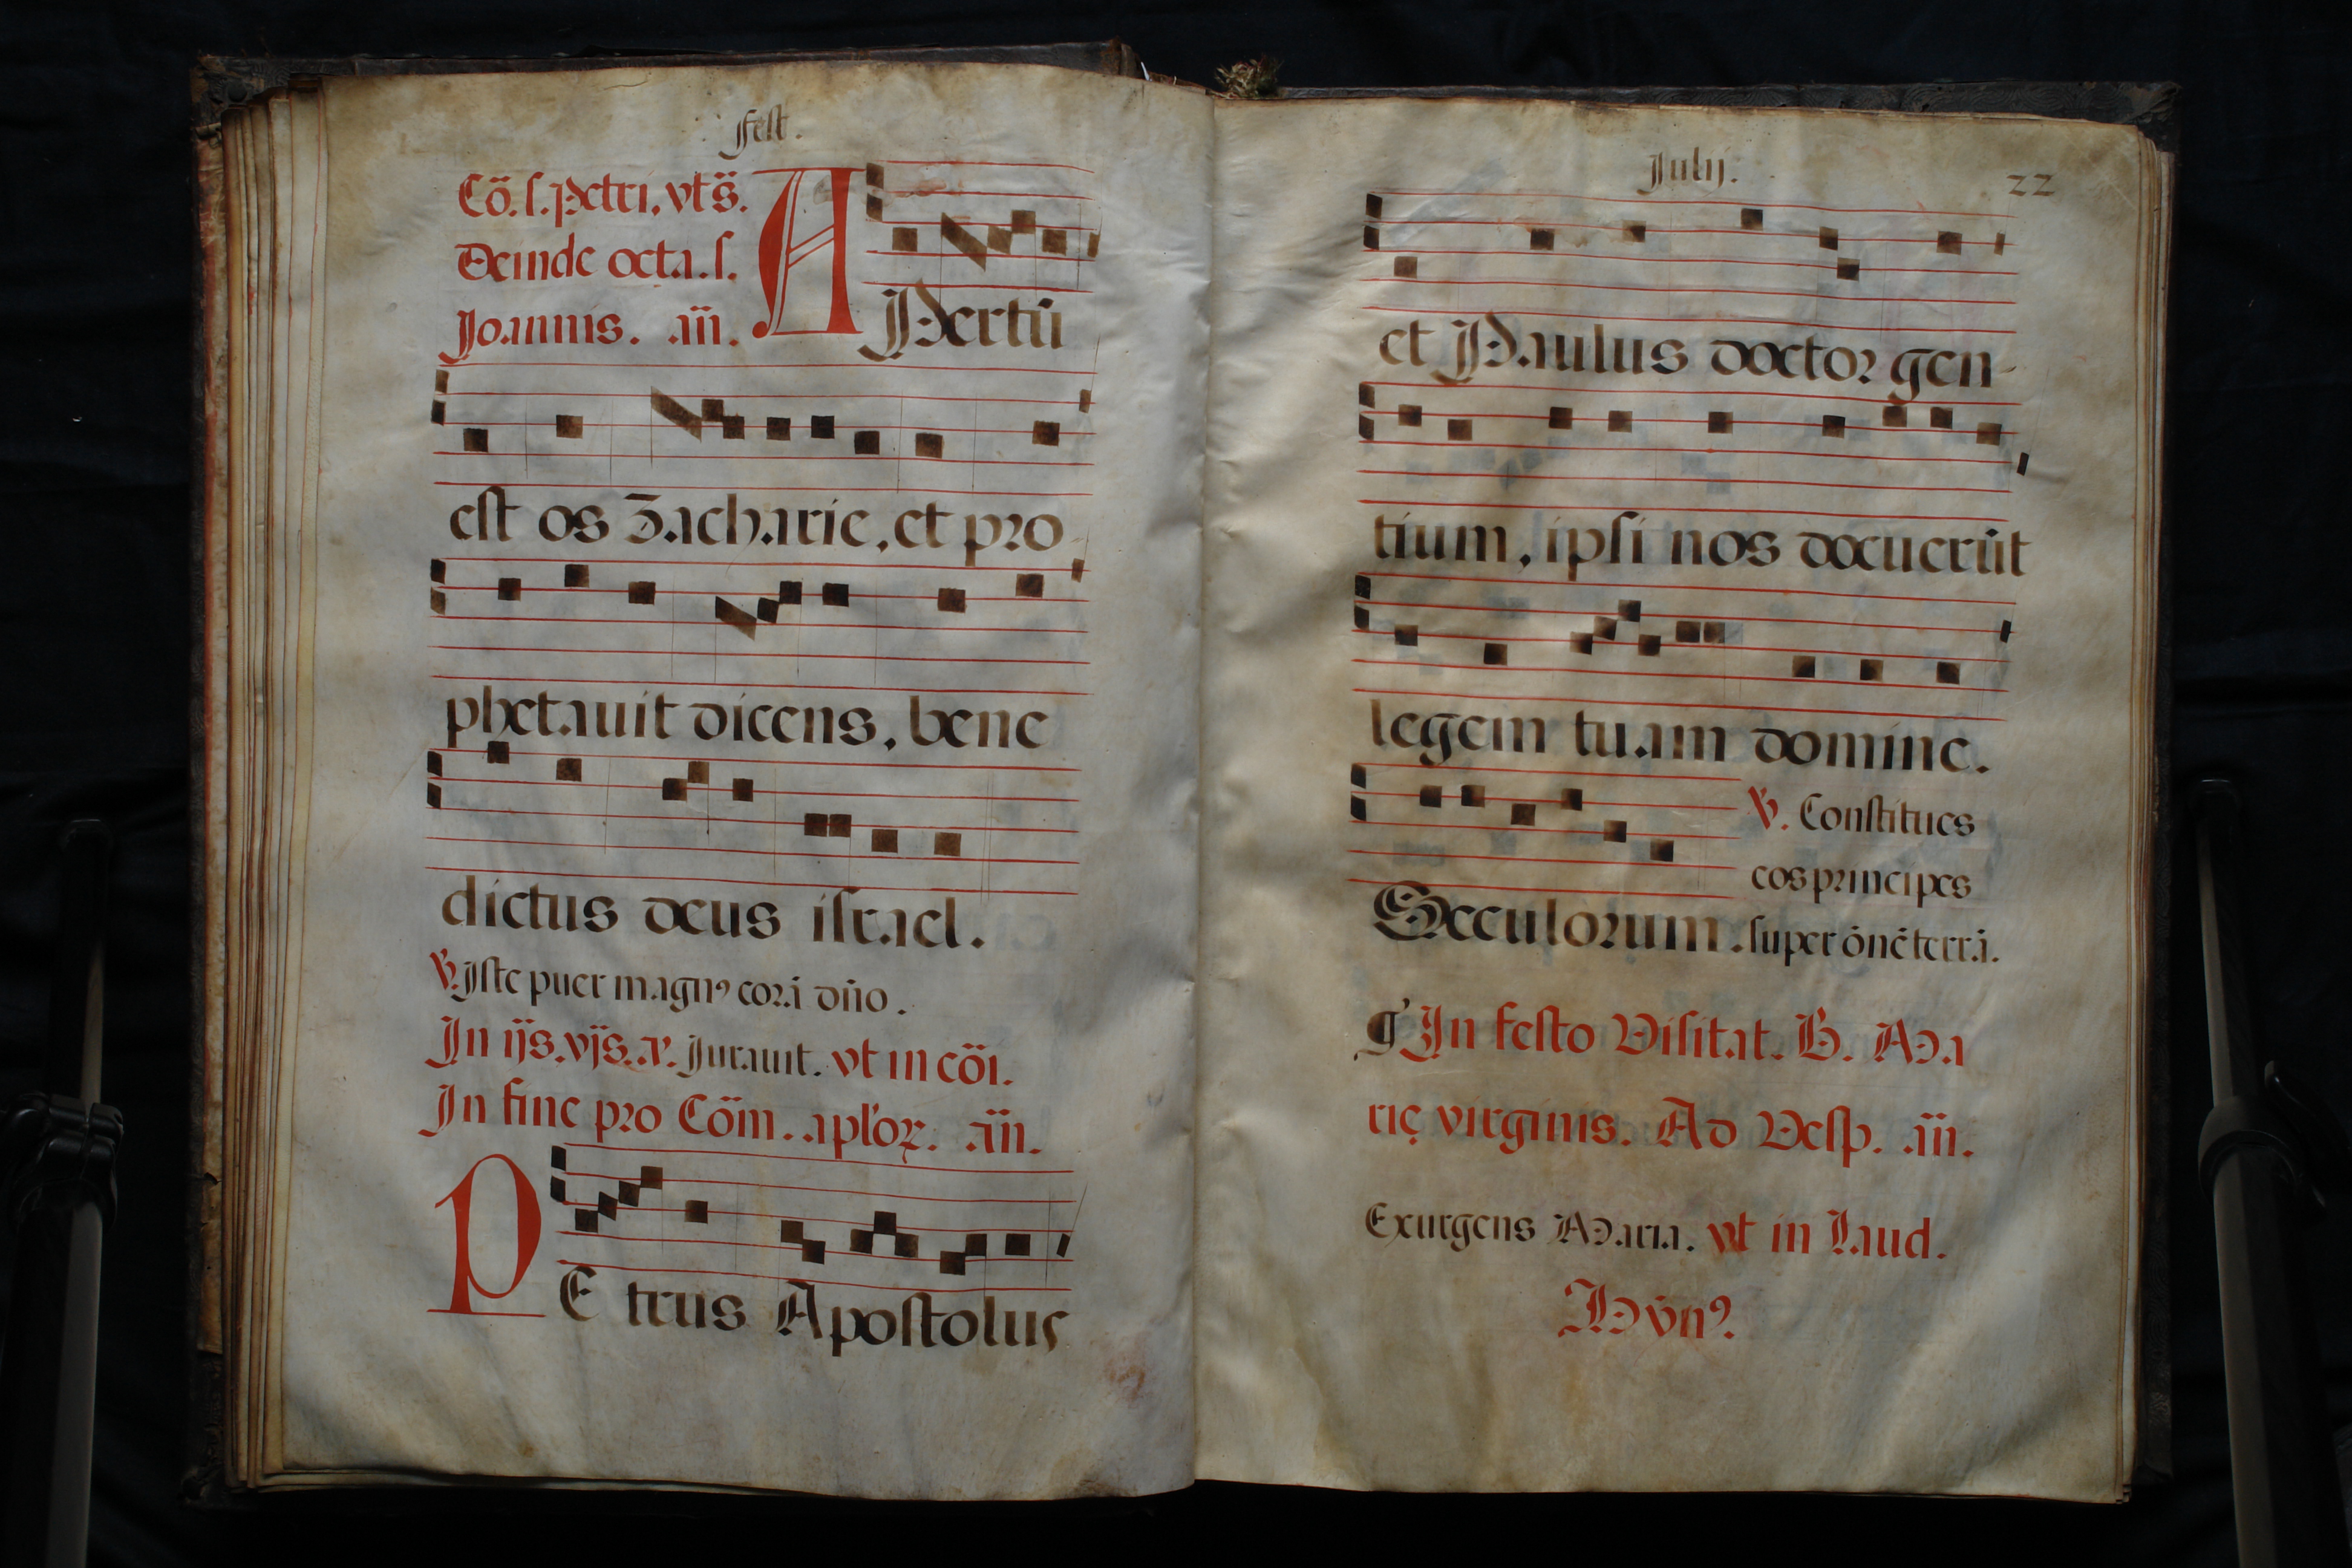 fest.
Cō. s. Petri, vt s̄.
Deinde octa. s.
Joannis. .añ.
APertū
est os Zacharie, et pro
phetauit dicens, bene
dictus deus israel.
℣. Iste puer magnꝰ corā dño.
In ijs. vjs. Jurauit. vt in cōi.
In fine pro Cōm. aplōꝝ. añ.
PE trus Apostolus
Julij.
22
et Paulus doctor gen-
tium, ipsi nos docuerūt
legem tuam domine.
℣. Constitues
eos principes
Seculorum. super ōnē terrā.
In festo Visitat. B. Ma
rię virginis. Ad Vesp. .añ.
Exurgens Maria. vt in Laud.
Hȳnꝰ.